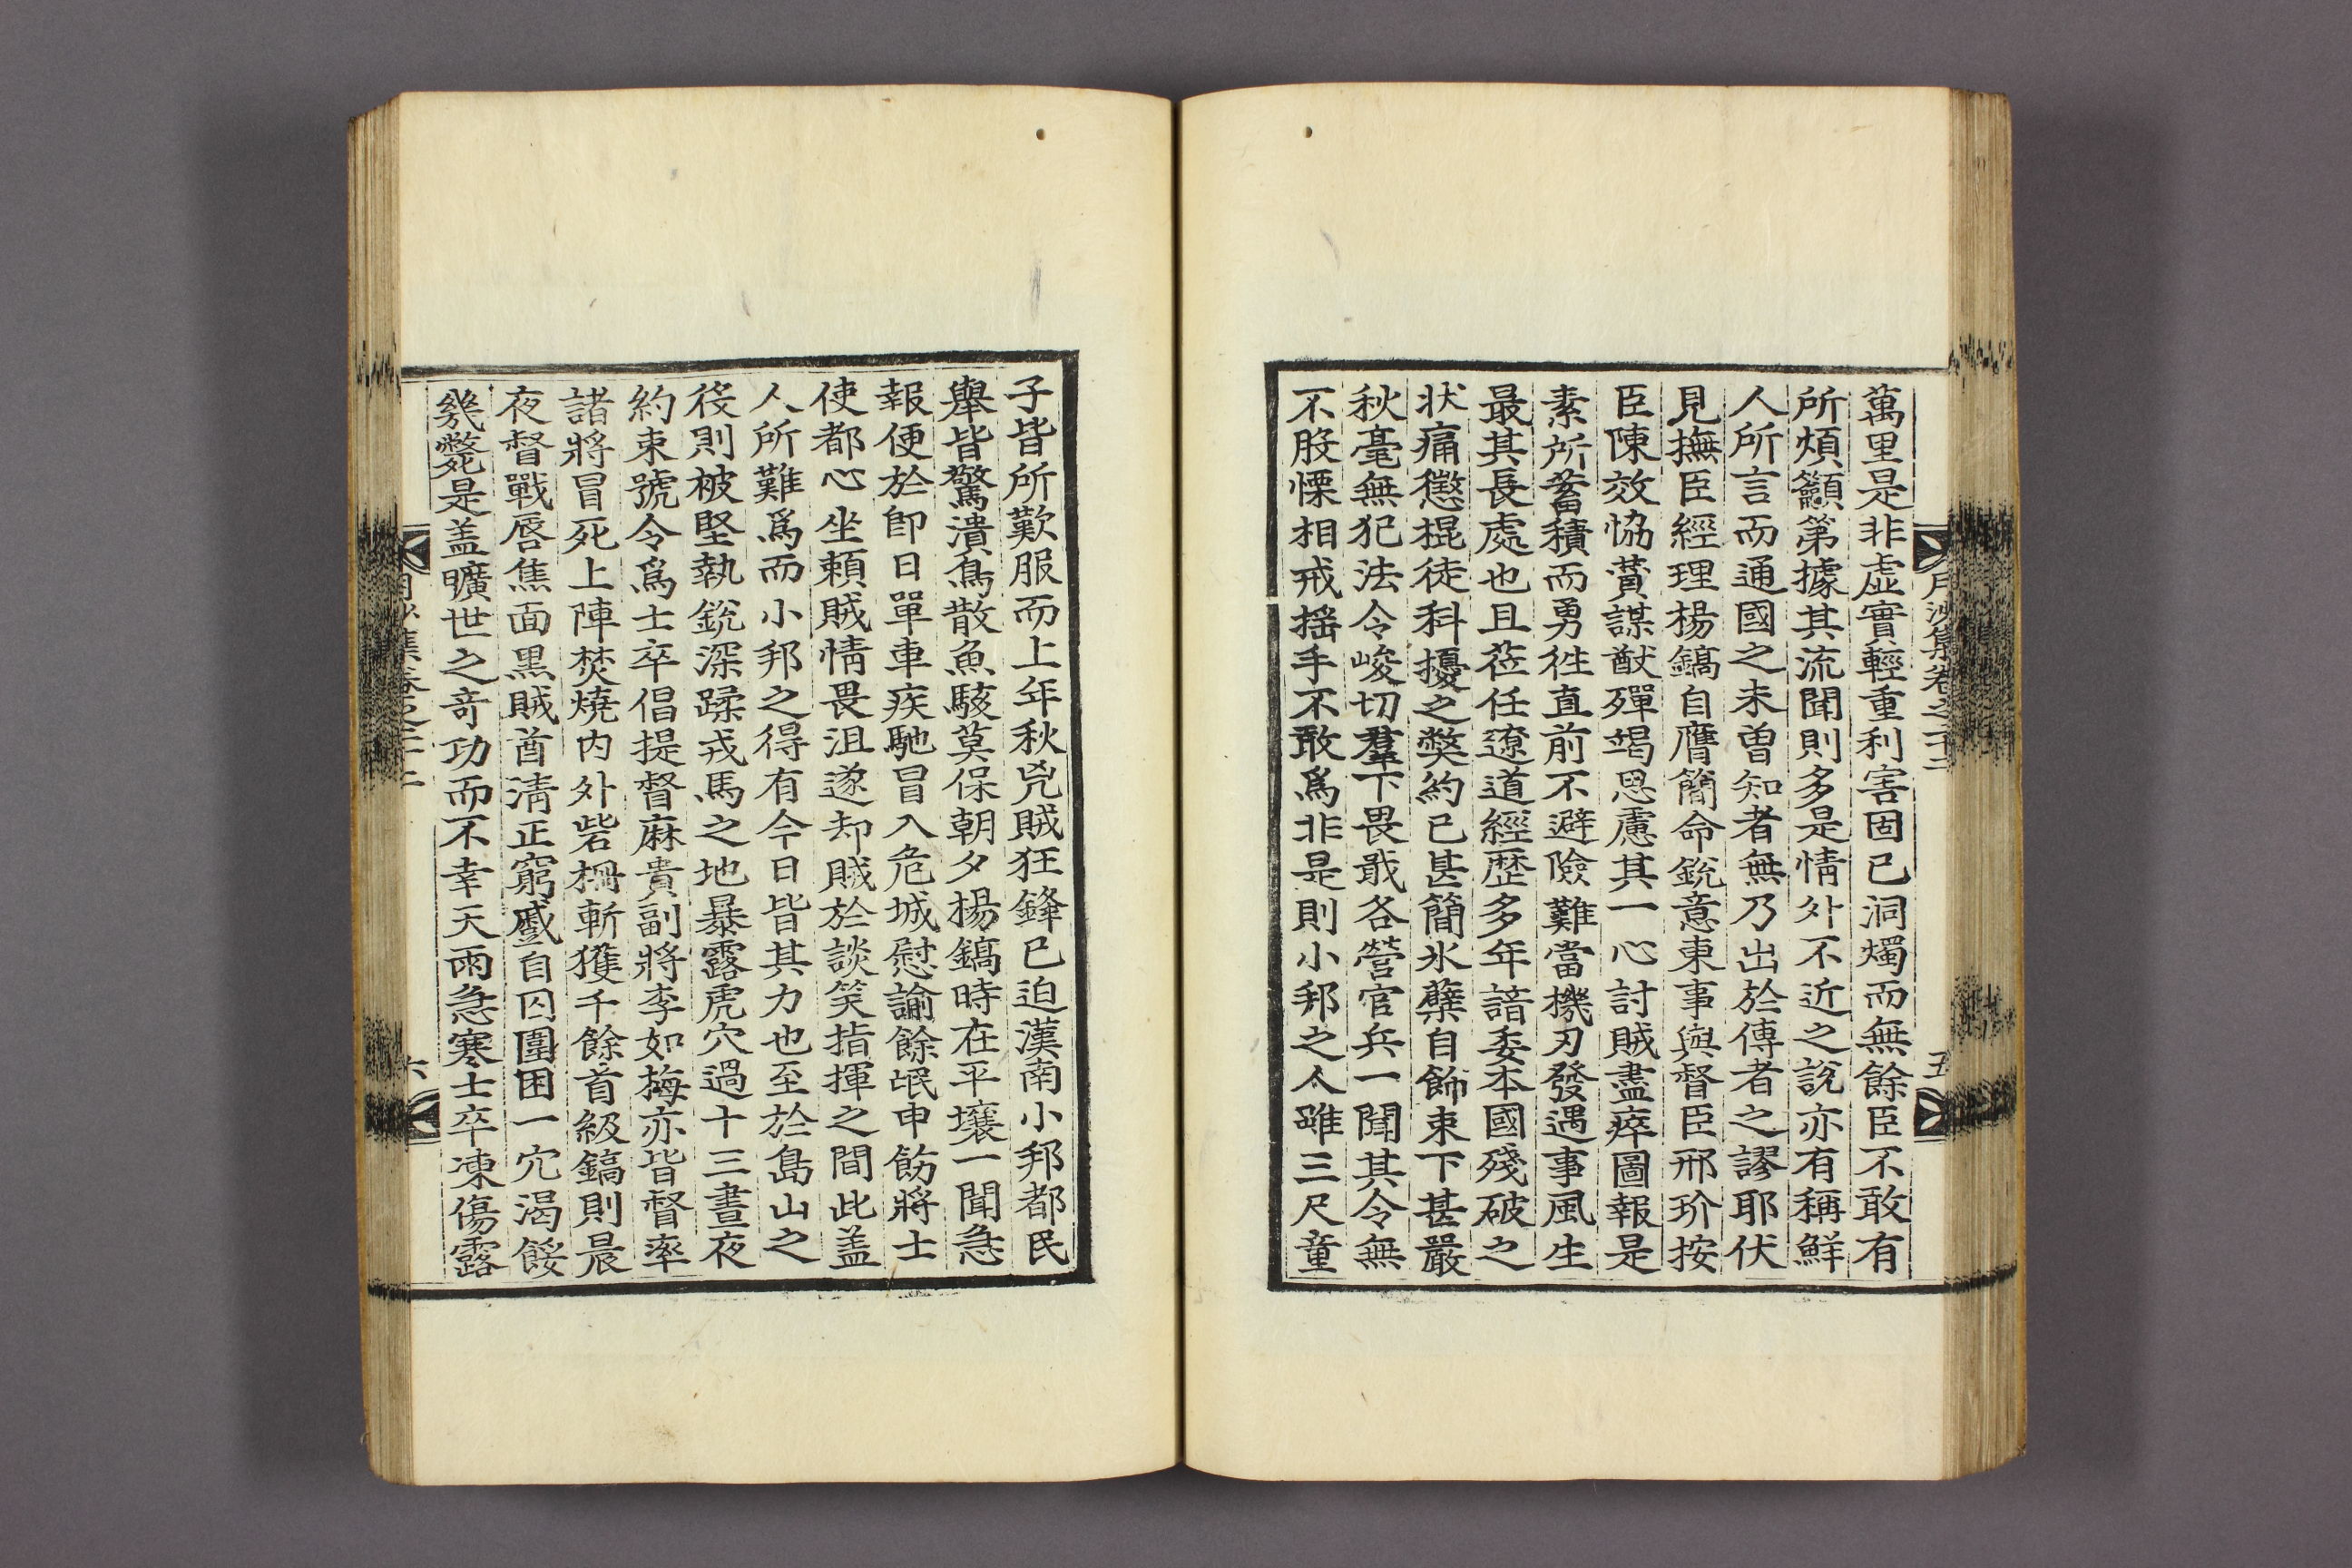 萬里是非虛實輕重利害固已洞燭而無餘臣不敢有
所煩籲第據其流聞則多是情外不近之說亦有稱鮮
人所言而通國之未曾知者無乃出於傳者之謬耶伏
見撫臣經理楊鎬自膺簡命銳意東事與督臣邢玠按
臣陳效恊賛謀猷殫竭思慮其一心討賊盡瘁圖報是
素所蓄積而勇徃直前不避險難當機刃發遇事風生
最其長處也且莅任遼道經歷多年諳委本國殘破之
状痛懲棍徒科擾之獘約已甚簡氷蘗自飾束下甚嚴
秋毫無犯法令峻切羣下畏戢各營官兵一聞其令無
不股慄相戒揺手不敢爲非是則小邦之人雖三尺童
月沙集卷之二十二
五
子皆所歎服而上年秋兇賊狂鋒已迫漢南小邦都民
擧皆驚潰鳥散魚駭莫保朝夕楊鎬時在平壤一聞急
報便於卽日單車疾馳冒入危城慰諭餘氓申飭將士
使都心坐頼賊情畏沮遂却賊於談笑指揮之間此盖
人所難爲而小邦之得有今日皆其力也至於島山之
役則被堅執銳深蹂戎馬之地暴露虎穴過十三晝夜
約束號令爲士卒倡提督麻貴副將李如梅亦皆督率
諸將冒死上陣焚燒内外砦柵斬獲千餘首級鎬則晨
夜督戰唇焦面黑賊酋淸正窮蹙自囚圍困一穴渴餒
幾斃是盖曠世之奇功而不幸天雨急寒士卒凍傷露
月沙集卷之二十二
六